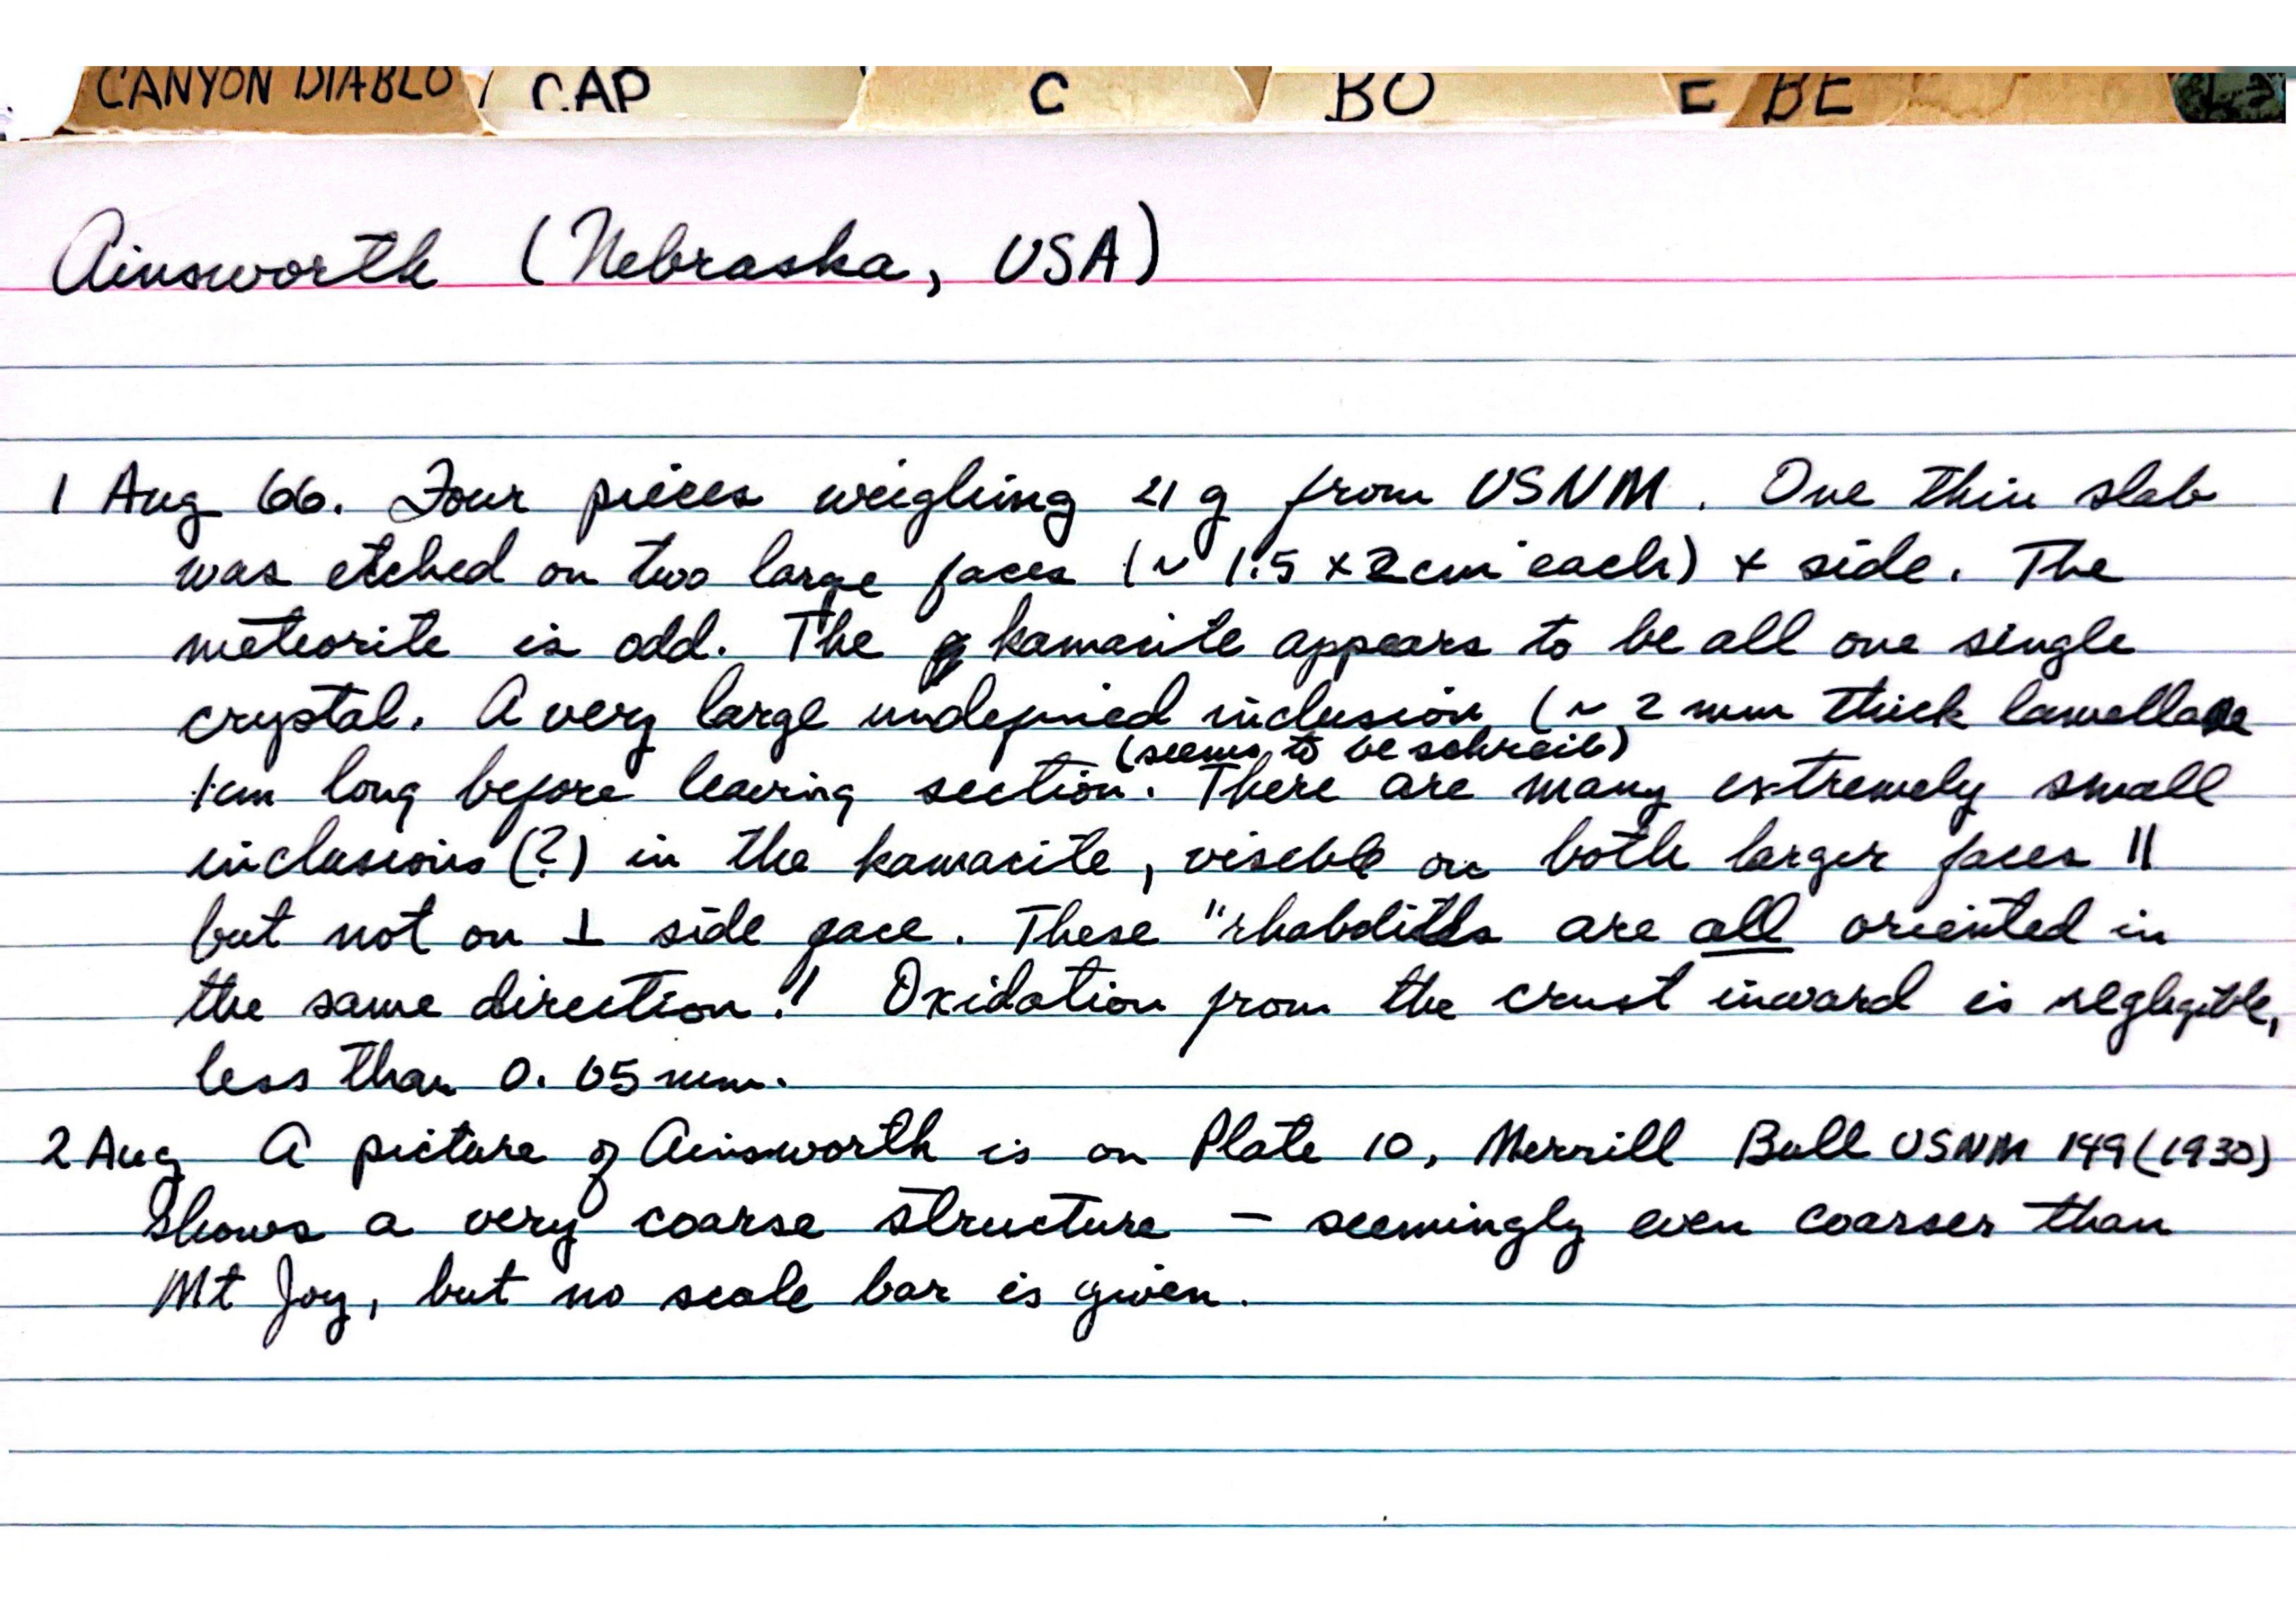 CANYON DIABLO CAP C BO E BE
Ainsworth (Nebraska, USA)
1 Aug 66. Four pieces weighing 21 g from USNM. One thin slab
was etched on two large faces (~ 1.5 x 2 cm each) + side. The
meteorite is odd. The kamacite appears to be all one single
crystal. A very large undefined inclusion (~ 2 mm thick lamellae
(seems to be schreib)
1cm long before leaving section. There are many extremely small
inclusions (?) in the kamacite, visible on both larger faces ||
but not on ⊥ side face. These "rhabdites are all oriented in
the same direction! Oxidation from the crust inward is negligible,
less than 0.05 mm.
2 Aug A picture of Ainsworth is on Plate 10, Merrill Bull USNM 149 (1930)
Shows a very coarse structure – seemingly even coarser than
Mt Joy, but no scale bar is given.